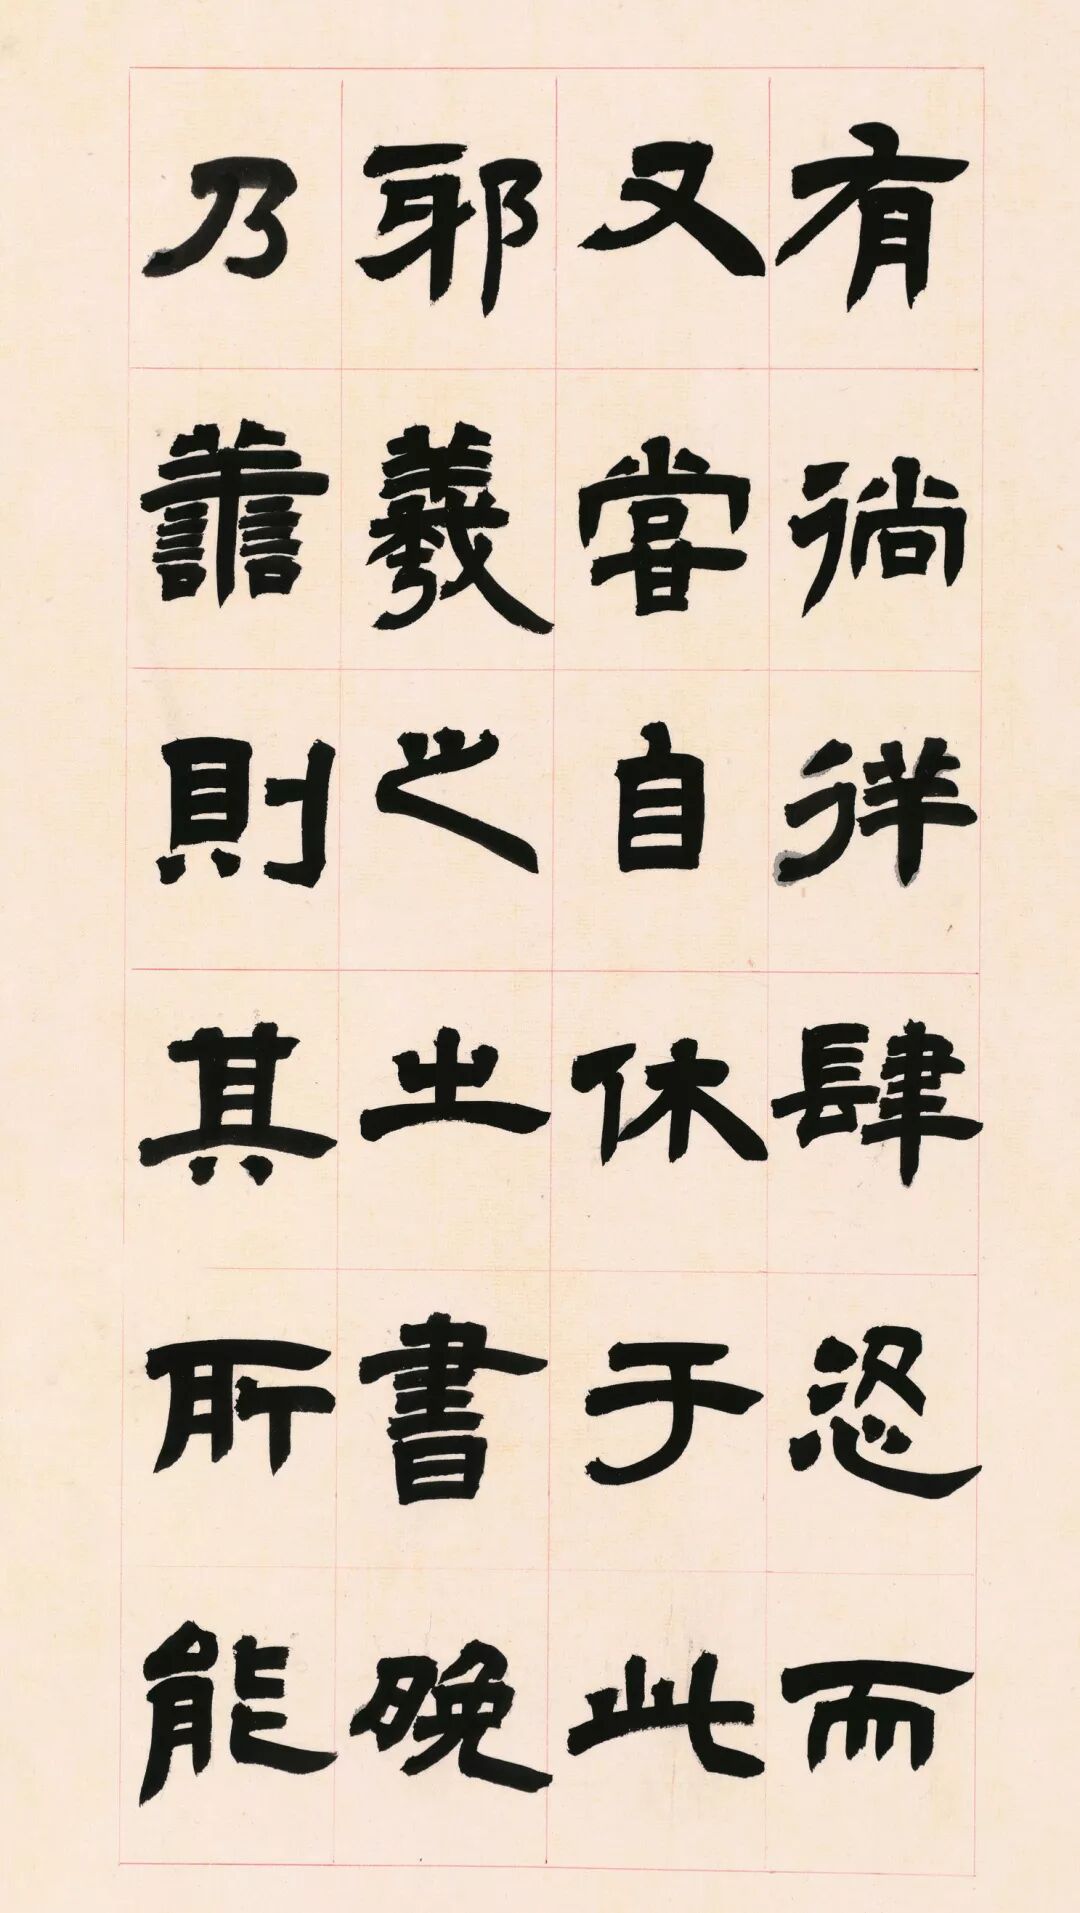 有徜徉肆恣而
又嘗自休于此
邪羲之之書晚
乃譱則其所能